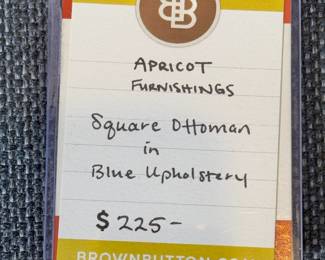 BB
APRICOT
FURNISHINGS
Square Ottoman
in
Blue Upholstery
$225-
BROWNBUTTON.COM